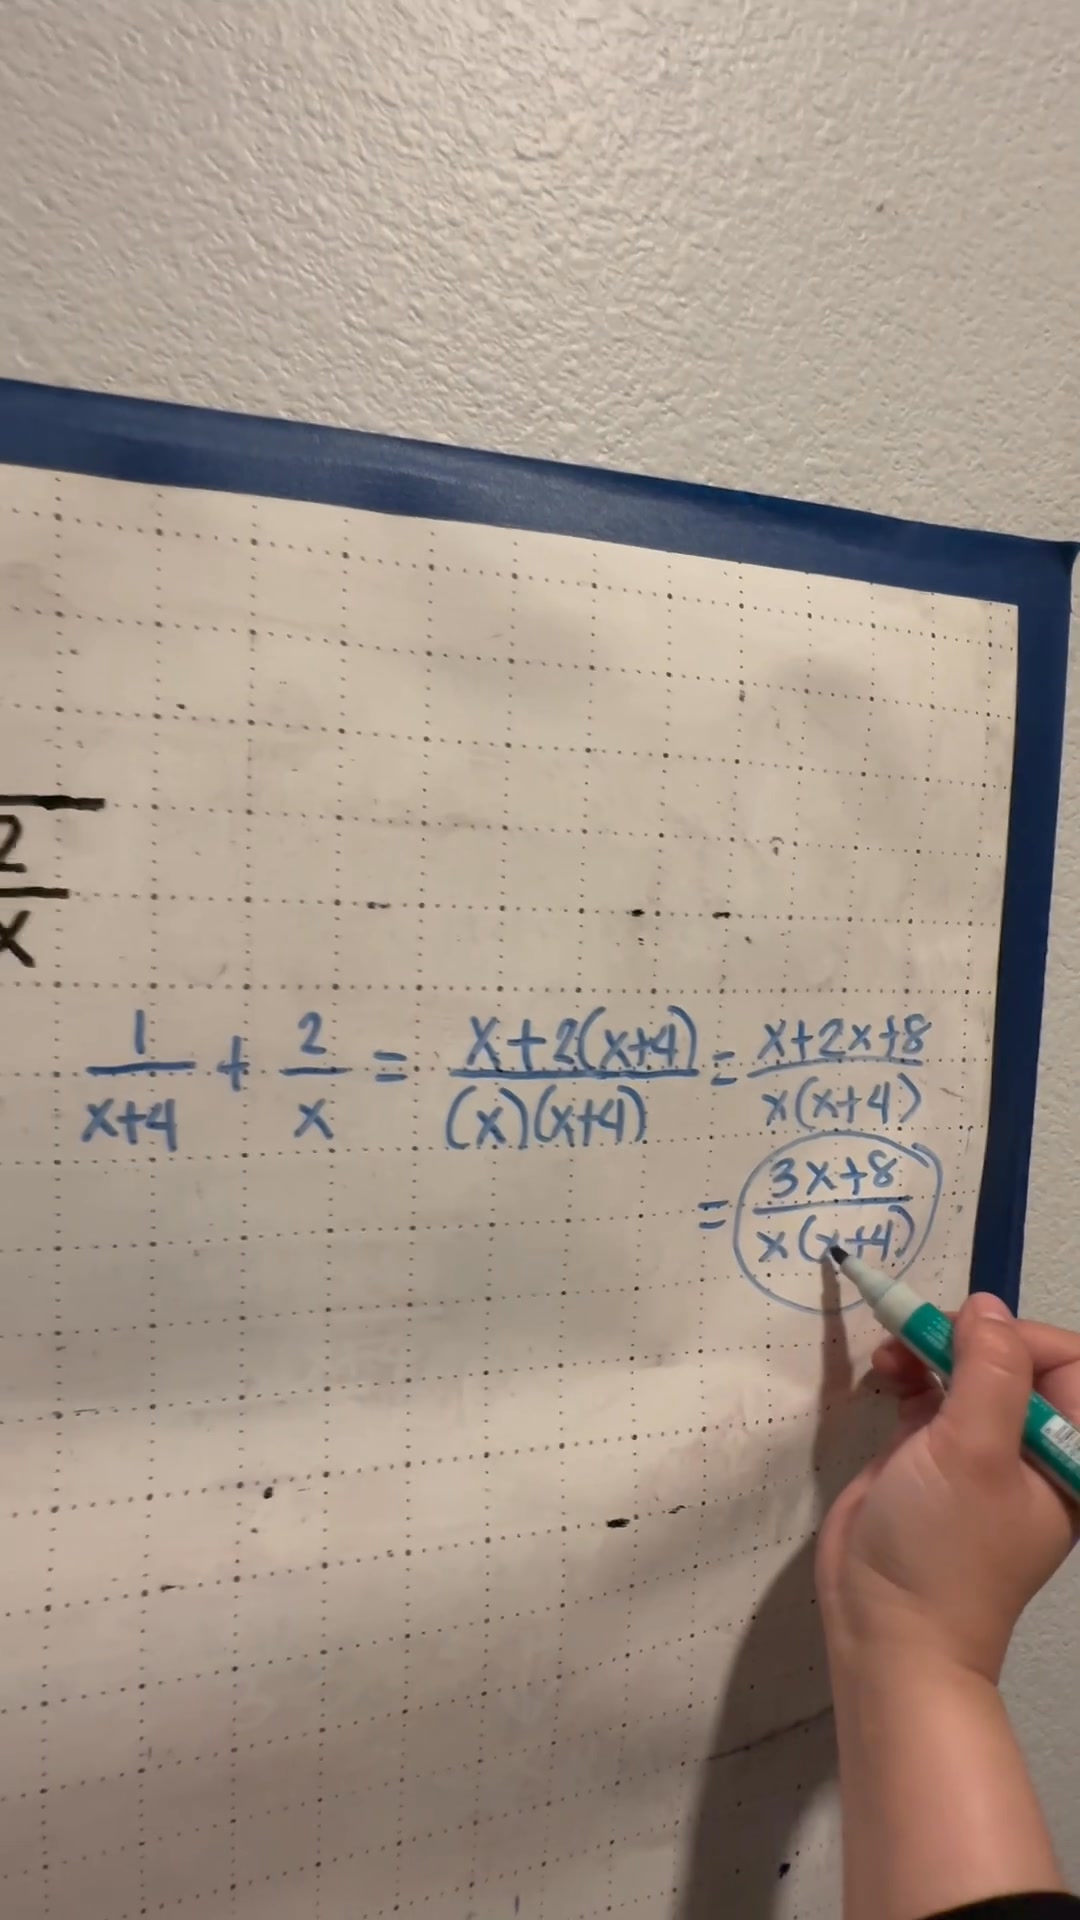 2
x
1/(x+4) + 2/x = (x+2(x+4))/((x)(x+4)) = (x+2x+8)/(x(x+4))
= (3x+8)/(x(x+4))